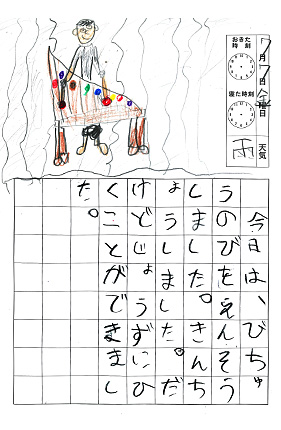 7月7日金曜日
おきた
時刻
寝た時刻
天気
雨
今日は、びちゅ
うのびをえんそう
しました。きんち
ょうしました。だ
けどじょうずにひ
くことがでままし
た。